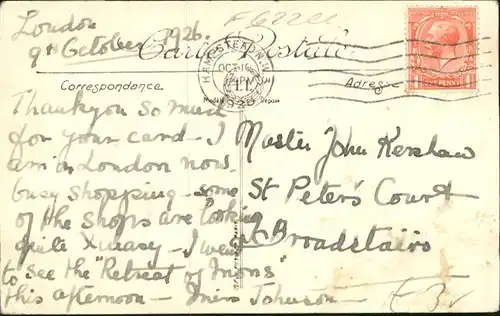 London
9th October 1926.
Carte Postale
HAMPSTEAD N.W.3
OCT 16
1926
Correspondence.
Modèle Déposé
Adresse
Thankyou so much
for your card - I
am in London now -
busy shopping - some
of the shops are looking
quite Xmasy - I went
to see the "Retreat of Mons"
this afternoon - Miss Johnson -
Master John Kershaw
St Peter's Court
Broadstairs